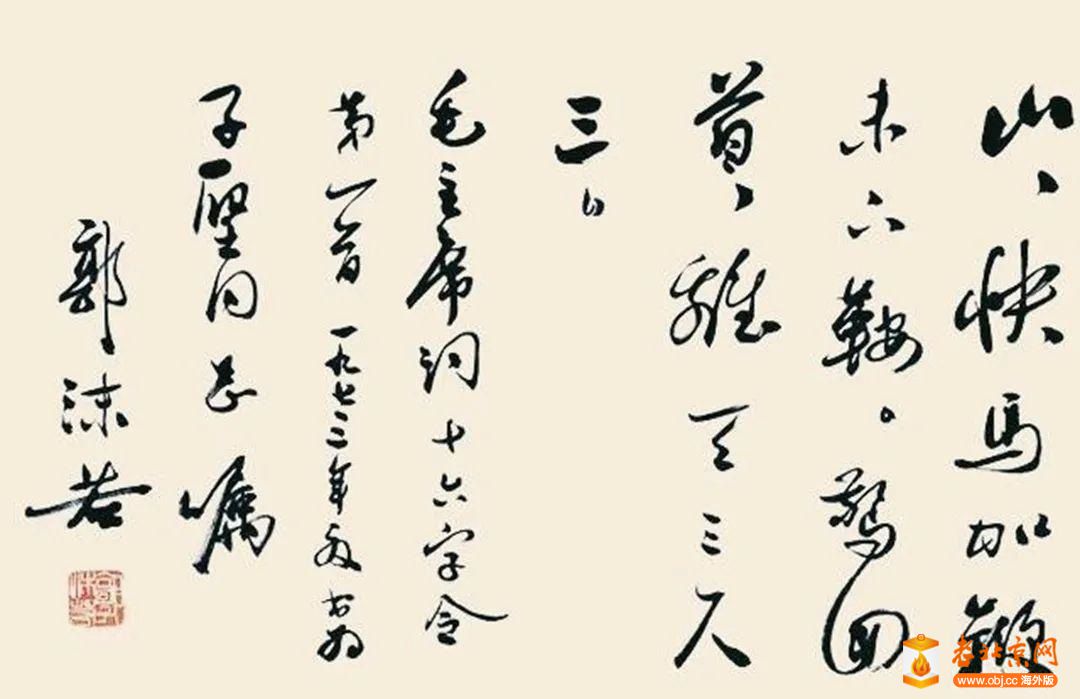 山、快馬加鞭
未下鞍。驚回
首、離天三尺
三。
毛主席词十六字令
第一首 一九七三年 书为
子 同志嘱
郭沫若
老北京网
www.obj.cc 海外版